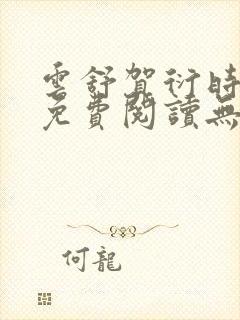 雲舒賀衍時
免費閱讀無
何龍